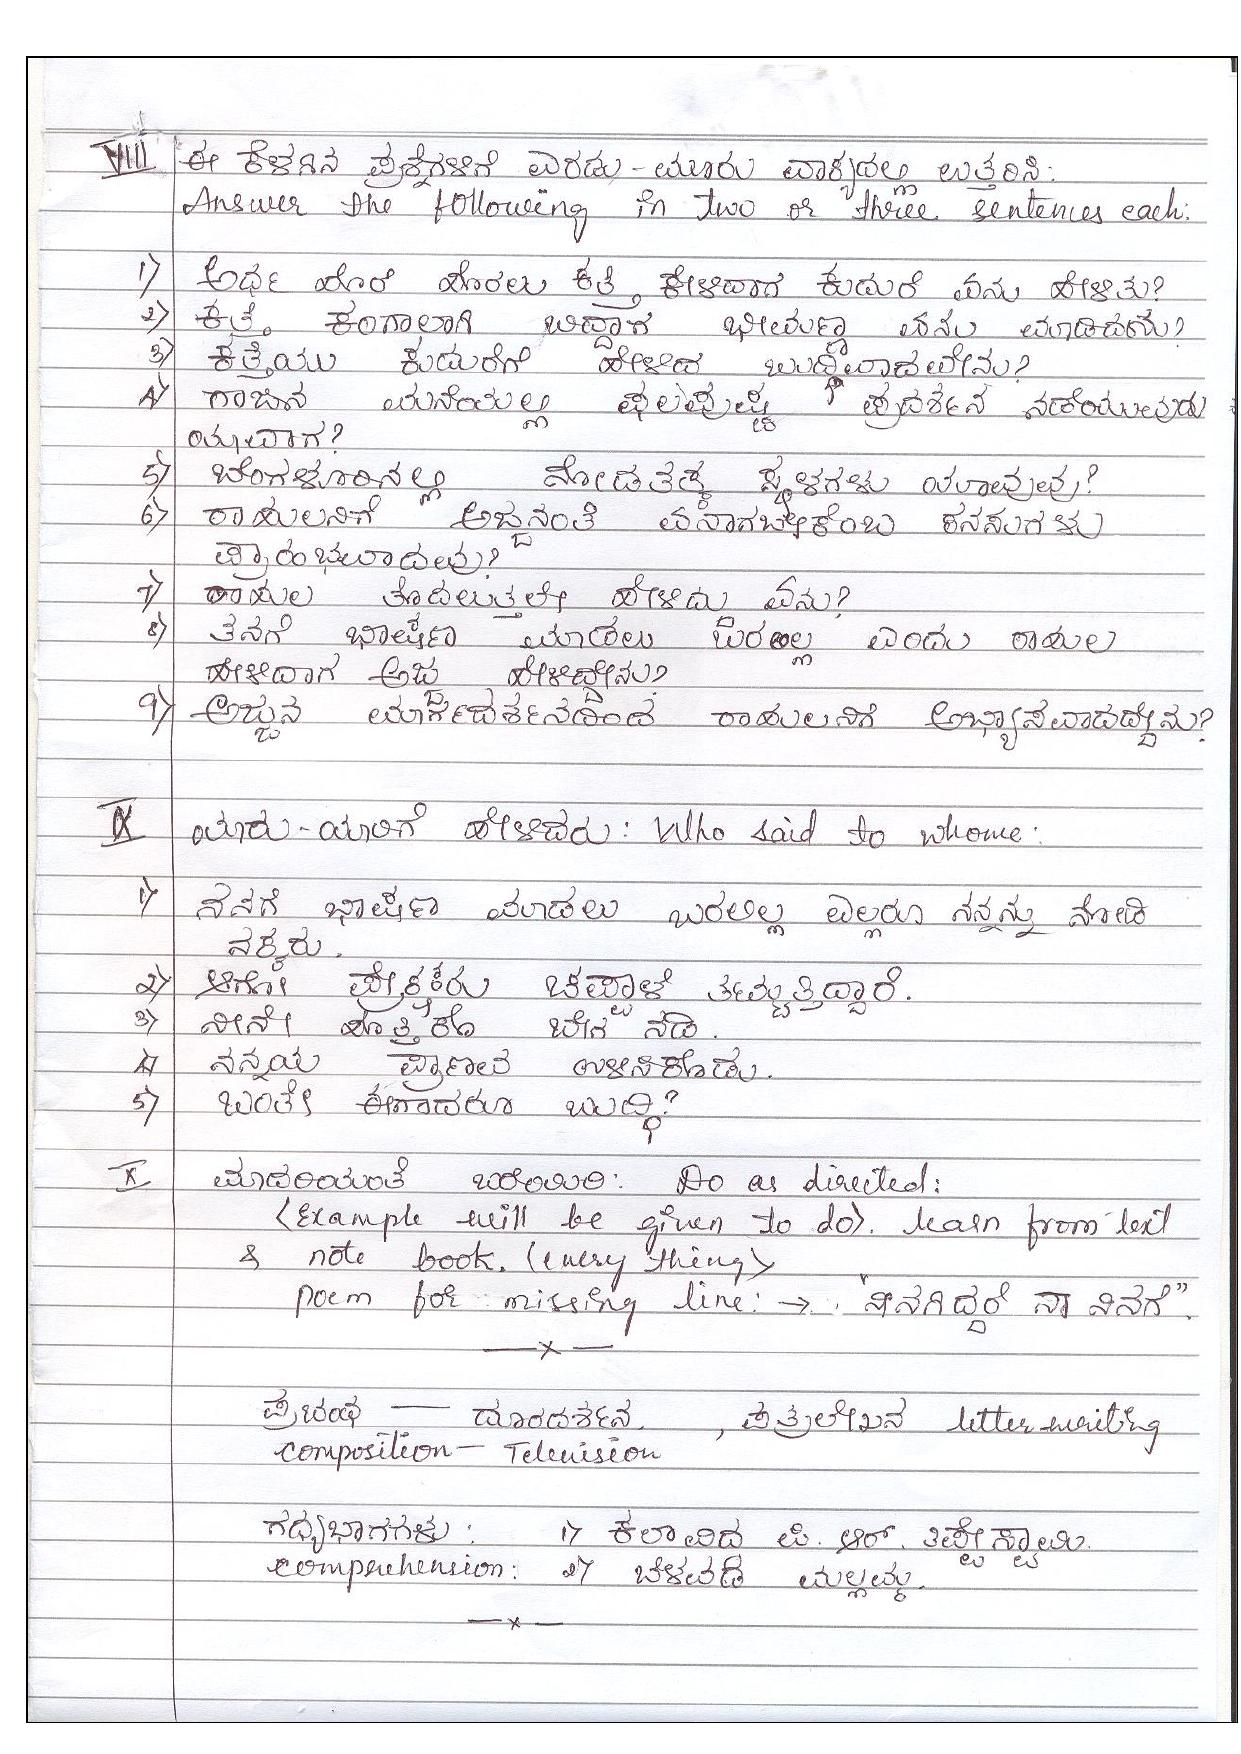 VIII ಈ ಕೆಳಗಿನ ಪ್ರಶ್ನೆಗಳಿಗೆ ಎರಡು - ಮೂರು ವಾಕ್ಯದಲ್ಲಿ ಉತ್ತರಿಸಿ:
Answer the following in two or three sentences each:
1) ಅರ್ಧ ಹೊರೆ ಹೊರಲು ಕತ್ತೆ ಕೇಳಿದಾಗ ಕುದುರೆ ಏನು ಹೇಳಿತು?
2) ಕತ್ತೆ ಕಂಗಾಲಾಗಿ ಬಿದ್ದಾಗ ಭೀಮಣ್ಣ ಏನು ಮಾಡಿದನು?
3) ಕತ್ತೆಯು ಕುದುರೆಗೆ ಹೇಳಿದ ಬುದ್ಧಿವಾದವೇನು?
4) ರಾಜುನ ಮನೆಯಲ್ಲಿ ಫಲಪುಷ್ಪ ಪ್ರದರ್ಶನ ನಡೆಯುವುದು
ಯಾವಾಗ?
5) ಬೆಂಗಳೂರಿನಲ್ಲಿ ನೋಡತಕ್ಕ ಸ್ಥಳಗಳು ಯಾವುವು?
6) ರಾಹುಲನಿಗೆ ಅಜ್ಜನಂತೆ ಏನಾಗಬೇಕೆಂಬ ಕನಸುಗಳು
ಪ್ರಾರಂಭವಾದವು?
7) ರಾಹುಲ ತೊದಲುತ್ತಲೇ ಹೇಳಿದು ಏನು?
8) ತನಗೆ ಭಾಷಣ ಮಾಡಲು ಬರಲಿಲ್ಲ ಎಂದು ರಾಹುಲ
ಹೇಳಿದಾಗ ಅಜ್ಜ ಹೇಳಿದ್ದೇನು?
9) ಅಜ್ಜನ ಮಾರ್ಗದರ್ಶನದಿಂದ ರಾಹುಲನಿಗೆ ಅಭ್ಯಾಸವಾದದ್ದೇನು?
IX ಯಾರು - ಯಾರಿಗೆ ಹೇಳಿದರು: Who said to whome:
1) ನನಗೆ ಭಾಷಣ ಮಾಡಲು ಬರಲಿಲ್ಲ ಎಲ್ಲರೂ ನನ್ನನ್ನು ನೋಡಿ
ನಕ್ಕರು.
2) ಆಗೋ ಪ್ರೇಕ್ಷಕರು ಚಪ್ಪಾಳೆ ತಟ್ಟುತ್ತಿದ್ದಾರೆ.
3) ನೀನೇ ಹೊತ್ತುಕೊ ಬೇಗ ನಡಿ.
4) ನನ್ನಯ ಪ್ರಾಣವ ಉಳಿಸಿಕೊಡು.
5) ಬಂತೇ ಈಗಾದರೂ ಬುದ್ಧಿ?
X ಮಾದರಿಯಂತೆ ಬರೆಯಿರಿ: Do as directed:
(Example will be given to do). learn from text
& note book. (every thing)
poem for missing line: → "ನೀನಗಿದ್ದರೆ ನಾ ನಿನಗೆ".
—x—
ಪ್ರಬಂಧ — ದೂರದರ್ಶನ. , ಪತ್ರಲೇಖನ letter writing
composition — Television
ಗದ್ಯಭಾಗಗಳು: 1) ಕಲಾವಿದ ಪಿ. ಆರ್. ತಿಪ್ಪೇಸ್ವಾಮಿ.
comprehension: 2) ಬೆಳವಡಿ ಮಲ್ಲಮ್ಮ.
—x—